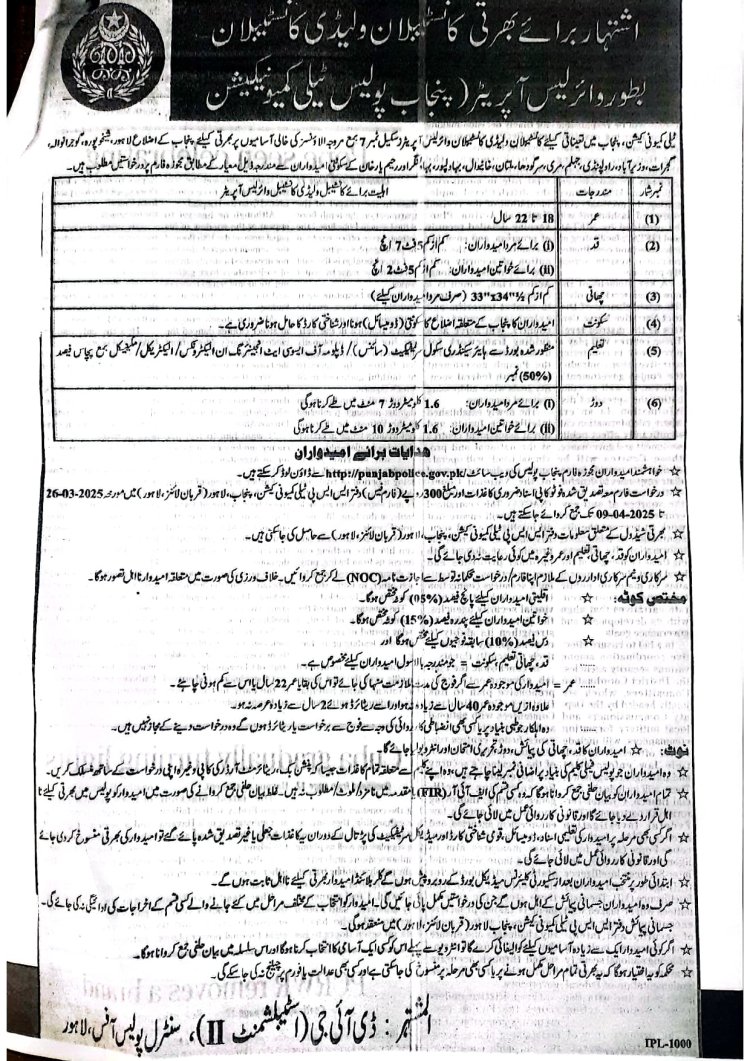 اشتہار برائے بھرتی کانسٹیبلان ولیڈی کانسٹیبلان
بطور وائرلیس آپریٹر (پنجاب پولیس ٹیلی کمیونیکیشن
ٹیلی کمیونیکیشن، پنجاب میں تعیناتی کیلئے کانسٹیبلان ولیڈی کانسٹیبلان وائرلیس آپریٹر (سکیل نمبر 7 بمع مروجہ الاؤنسز کی خالی آسامیوں پر بھرتی کیلئے پنجاب کے اضلاع لاہور، شیخوپورہ، گوجرانوالہ،
گجرات، وزیرآباد، راولپنڈی، جہلم، مری، سرگودھا، ملتان، خانیوال، بہاولپور، بہاولنگر اور رحیم یارخان کے سکونتی امیدواران سے مندرجہ ذیل معیار کے مطابق مجوزہ فارم پر درخواستیں مطلوب ہیں۔
نمبر شمار مندرجات اہلیت برائے کانسٹیبل ولیڈی کانسٹیبل وائرلیس آپریٹر
(1) عمر 18 تا 22 سال
(2) قد (i) برائے مرد امیدواران: کم از کم 5 فٹ 7 انچ
(ii) برائے خواتین امیدواران: کم از کم 5 فٹ 2 انچ
(3) چھاتی کم از کم 33"x34½" (صرف مرد امیدواران کیلئے)
(4) سکونت امیدواران کا پنجاب کے متعلقہ اضلاع کا سکونتی (ڈومیسائل) ہونا اور شناختی کارڈ کا حامل ہونا ضروری ہے۔
(5) تعلیم منظور شدہ بورڈ سے ہائیر سیکنڈری سکول سرٹیفکیٹ (سائنس) / ڈپلومہ آف ایسوسی ایٹ انجینئرنگ ان الیکٹرونکس / الیکٹریکل / مکینیکل بمع پچاس فیصد
(50%) نمبر
(6) دوڑ (i) برائے مرد امیدواران: 1.6 کلومیٹر دوڑ 7 منٹ میں طے کرنا ہوگی
(ii) برائے خواتین امیدواران: 1.6 کلومیٹر دوڑ 10 منٹ میں طے کرنا ہوگی
ہدایات برائے امیدواران
☆ خواہشمند امیدواران مجوزہ فارم پنجاب پولیس کی ویب سائٹ http://punjabpolice.gov.pk/ سے ڈاؤن لوڈ کر سکتے ہیں۔
☆ درخواست فارم معہ تصدیق شدہ فوٹو کاپی اسناد ضروری کاغذات اور مبلغ 300 روپے (فارم فیس) دفتر ایس ایس پی ٹیلی کمیونیکیشن، پنجاب، لاہور (قربان لائنز، لاہور) میں مورخہ 26-03-2025
تا 09-04-2025 تک جمع کروائے جاسکتے ہیں۔
☆ بھرتی شیڈول کے متعلق معلومات دفتر ایس ایس پی ٹیلی کمیونیکیشن، پنجاب، لاہور (قربان لائنز، لاہور) سے حاصل کی جاسکتی ہیں۔
☆ امیدواران کو قد، چھاتی تعلیم اور عمر وغیرہ میں کوئی رعایت نہ دی جائے گی۔
☆ سرکاری ونیم سرکاری اداروں کے ملازم اپنا فارم / درخواست محکمانہ توسط سے اجازت نامہ (NOC) لے کر جمع کروائیں۔ خلاف ورزی کی صورت میں متعلقہ امیدوار نااہل تصور ہوگا۔
مختص کوٹہ: ☆ اقلیتی امیدواران کیلئے پانچ فیصد (05%) کوٹہ مختص ہوگا۔
☆ خواتین امیدواران کیلئے پندرہ فیصد (15%) کوٹہ مختص ہوگا۔
☆ دس فیصد (10%) سابقہ فوجیوں کیلئے مختص ہوگا اور
قد، چھاتی تعلیم، سکونت = جو مندرجہ بالا سول امیدواران کیلئے مخصوص ہے۔
عمر = امیدوار کی موجودہ عمر سے اگر فوج کی مدت ملازمت منہا کی جائے تو اس کی بقایا عمر 22 سال یا اس سے کم ہونی چاہیے۔
علاوہ ازیں موجودہ عمر 40 سال سے زیادہ نہ ہو اور اسے ریٹائرڈ ہوئے 2 سال سے زیادہ عرصہ نہ ہو۔
وہ اہلکار جو طبی بنیاد پر یا کسی بھی انضباطی کارروائی کی وجہ سے فوج سے برخواست یا ریٹائرڈ ہوں گے وہ درخواست دینے کے مجاز نہیں ہیں۔
نوٹ: ☆ امیدواران کا قد، چھاتی کی پیمائش، دوڑ، تحریری امتحان اور انٹرویو لیا جائے گا۔
☆ وہ امیدواران جو پولیس فیملی کلیم کی بنیاد پر اضافی نمبر لینا چاہتے ہیں، وہ اپنے کلیم سے متعلقہ تمام کاغذات جیسا کہ پنشن بک، ریٹائرمنٹ آرڈر کی کاپی وغیرہ اپنی درخواست کے ساتھ منسلک کریں۔
☆ تمام امیدواران کو بیان حلفی جمع کروانا ہوگا کہ وہ کسی قسم کی ایف آئی آر (FIR) مقدمہ میں نامزد / ملوث / مطلوب نہ ہیں۔ غلط بیان حلفی جمع کروانے کی صورت میں امیدوار کو پولیس میں بھرتی کیلئے نا
اہل قرار دے دیا جائے گا اور قانونی کارروائی عمل میں لائی جائے گی۔
☆ اگر کسی بھی مرحلہ پر امیدوار کی تعلیمی اسناد، ڈومیسائل، قومی شناختی کارڈ اور میڈیکل سرٹیفکیٹ کی پڑتال کے دوران یہ کاغذات جعلی یا غیر تصدیق شدہ پائے گئے تو امیدوار کی بھرتی منسوخ کر دی جائے
گی اور قانونی کارروائی عمل میں لائی جائے گی۔
☆ ابتدائی طور پر منتخب امیدواران بعد از سکیورٹی کلیئرنس میڈیکل بورڈ کے روبرو پیش ہوں گے کلر بلائنڈ امیدوار بھرتی کیلئے نااہل ثابت ہوں گے۔
☆ صرف وہ امیدواران جسمانی پیمائش کے اہل ہوں گے جن کی درخواستیں مکمل پائی جائیں گی۔ امیدوار کو انتخاب کے مختلف مراحل میں کئے جانے والے کسی قسم کے اخراجات کی ادائیگی نہ کی جائے گی۔
جسمانی پیمائش دفتر ایس ایس پی ٹیلی کمیونیکیشن، پنجاب لاہور (قربان لائنز، لاہور) میں منعقد ہوگی۔
☆ اگر کوئی امیدوار ایک سے زیادہ آسامیوں کیلئے کوالیفائی کرے گا تو انٹرویو سے پہلے اس کو کسی ایک آسامی کا انتخاب کرنا ہوگا اور اس سلسلہ میں بیان حلفی جمع کروانا ہوگا۔
☆ محکمہ کو یہ اختیار ہوگا کہ یہ بھرتی تمام مراحل مکمل ہونے پر یا کسی بھی مرحلہ پر منسوخ کی جاسکتی ہے اور کسی بھی عدالت یا فورم پر چیلنج نہ کی جاسکے گی۔
المشتہر: ڈی آئی جی (اسٹیبلشمنٹ II)، سنٹرل پولیس آفس، لاہور
IPL-1000